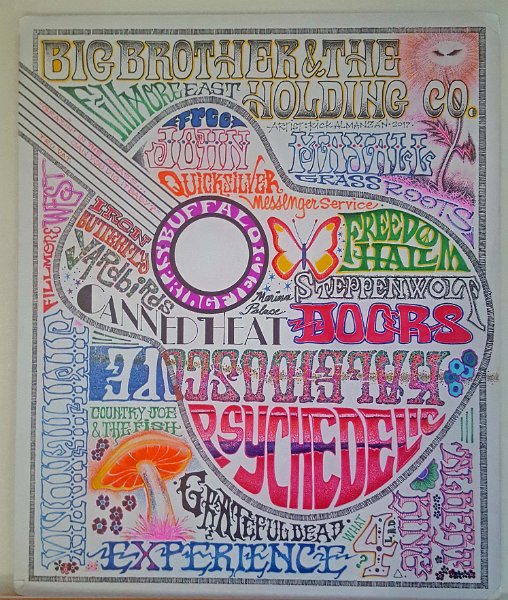 BIG BROTHER & THE
HOLDING CO.
FILLMORE EAST
ARTIST: RICK ALMANZAN · 2017 ·
JOHN MAYALL
GRASS ROOTS
QUICKSILVER
Messenger Service
BUFFALO
SPRINGFIELD
FREEDOM
HALL
FILLMORE WEST
IRON
BUTTERFLY
YARDBIRDS
STEPPENWOLF
Marina
Palace
CANNED HEAT
DOORS
KALEIDOSCOPE
COUNTRY JOE
& THE FISH
PSYCHEDELIC
GRATEFUL DEAD
WHAT
4
ALBERT
KING
EXPERIENCE